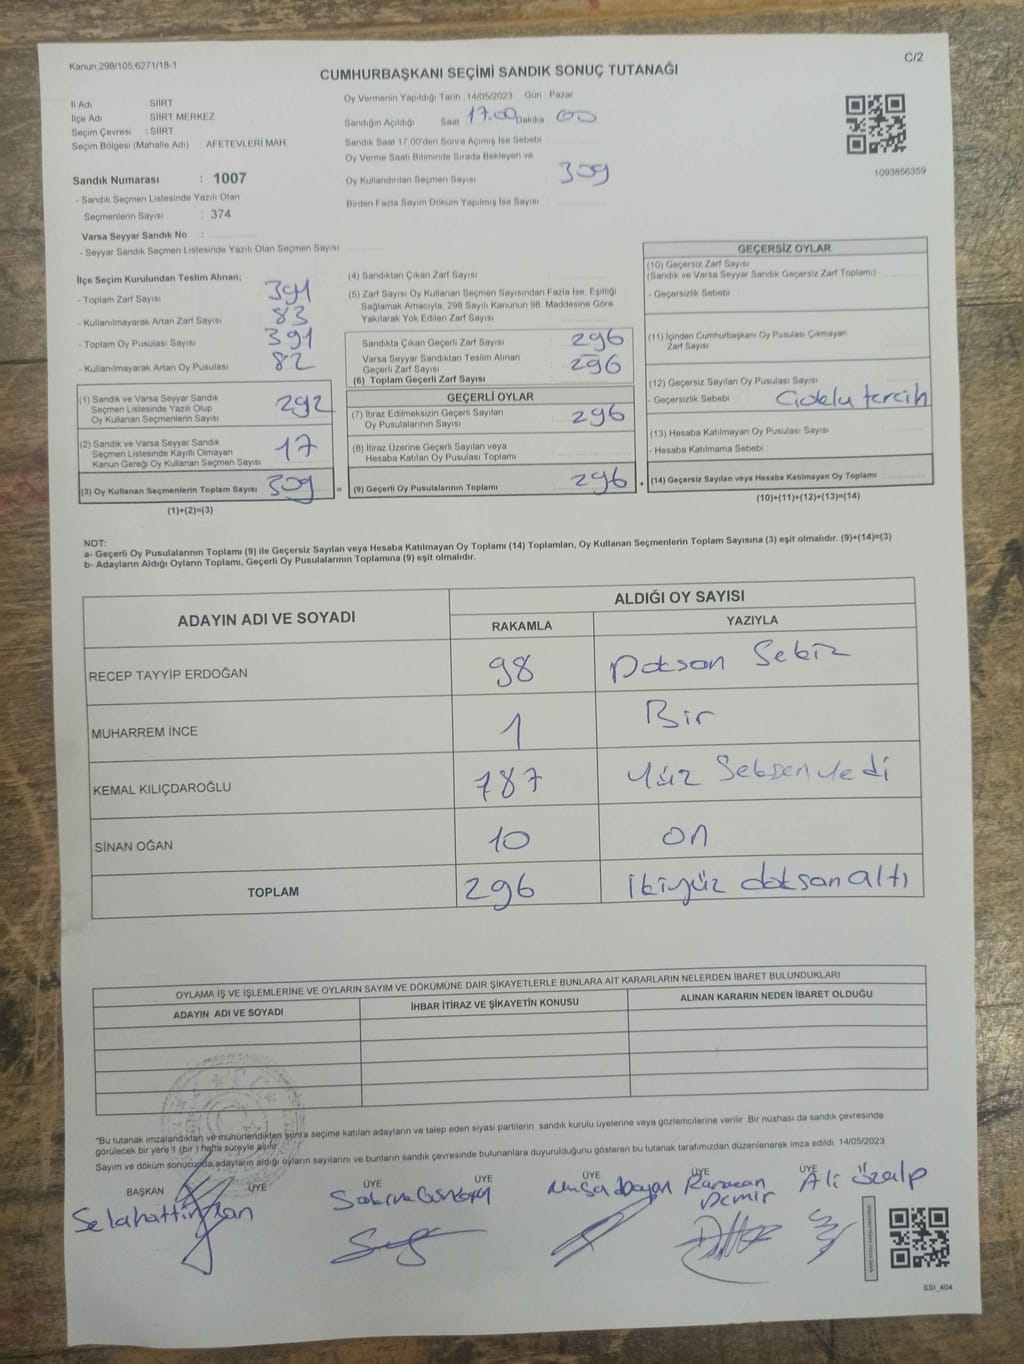 Kanun:298/105,6271/18-1
C/2
CUMHURBAŞKANI SEÇİMİ SANDIK SONUÇ TUTANAĞI
İl Adı : SİİRT
İlçe Adı : SİİRT MERKEZ
Seçim Çevresi : SİİRT
Seçim Bölgesi (Mahalle Adı) : AFETEVLERİ MAH.
Sandık Numarası : 1007
- Sandık Seçmen Listesinde Yazılı Olan
Seçmenlerin Sayısı : 374
Varsa Seyyar Sandık No :
- Seyyar Sandık Seçmen Listesinde Yazılı Olan Seçmen Sayısı
Oy Vermenin Yapıldığı Tarih :14/05/2023 Gün : Pazar
Sandığın Açıldığı Saat 17.00 Dakika 00
Sandık Saat 17.00'den Sonra Açımış İse Sebebi
Oy Verme Saati Bitiminde Sırada Bekleyen ve
Oy Kullandırılan Seçmen Sayısı 309
Birden Fazla Sayım Döküm Yapılmış İse Sayısı
1093856359
İlçe Seçim Kurulundan Teslim Alınan;
- Toplam Zarf Sayısı 391
- Kullanılmayarak Artan Zarf Sayısı 83
- Toplam Oy Pusulası Sayısı 391
- Kullanılmayarak Artan Oy Pusulası 82
(1) Sandık ve Varsa Seyyar Sandık
Seçmen Listesinde Yazılı Olup
Oy Kullanan Seçmenlerin Sayısı 292
(2) Sandık ve Varsa Seyyar Sandık
Seçmen Listesinde Kayıtlı Olmayan
Kanun Gereği Oy Kullanan Seçmen Sayısı 17
(3) Oy Kullanan Seçmenlerin Toplam Sayısı 309 =
(1)+(2)=(3)
(4) Sandıktan Çıkan Zarf Sayısı
(5) Zarf Sayısı Oy Kullanan Seçmen Sayısından Fazla İse, Eşitliği
Sağlamak Amacıyla, 298 Sayılı Kanunun 98. Maddesine Göre
Yakılarak Yok Edilen Zarf Sayısı
Sandıkta Çıkan Geçerli Zarf Sayısı 296
Varsa Seyyar Sandıktan Teslim Alınan
Geçerli Zarf Sayısı 296
(6) Toplam Geçerli Zarf Sayısı
GEÇERLİ OYLAR
(7) İtiraz Edilmeksizin Geçerli Sayılan
Oy Pusulalarının Sayısı 296
(8) İtiraz Üzerine Geçerli Sayılan veya
Hesaba Katılan Oy Pusulası Toplamı
(9) Geçerli Oy Pusulalarının Toplamı 296 +
GEÇERSİZ OYLAR
(10) Geçersiz Zarf Sayısı
(Sandık ve Varsa Seyyar Sandık Geçersiz Zarf Toplamı)
- Geçersizlik Sebebi :
(11) İçinden Cumhurbaşkanı Oy Pusulası Çıkmayan
Zarf Sayısı
(12) Geçersiz Sayılan Oy Pusulası Sayısı
- Geçersizlik Sebebi : Çoklu tercih
(13) Hesaba Katılmayan Oy Pusulası Sayısı
- Hesaba Katılmama Sebebi :
(14) Geçersiz Sayılan veya Hesaba Katılmayan Oy Toplamı
(10)+(11)+(12)+(13)=(14)
NOT:
a- Geçerli Oy Pusulalarının Toplamı (9) ile Geçersiz Sayılan veya Hesaba Katılmayan Oy Toplamı (14) Toplamları, Oy Kullanan Seçmenlerin Toplam Sayısına (3) eşit olmalıdır. (9)+(14)=(3)
b- Adayların Aldığı Oyların Toplamı, Geçerli Oy Pusulalarının Toplamına (9) eşit olmalıdır.
ADAYIN ADI VE SOYADI
ALDIĞI OY SAYISI
RAKAMLA YAZIYLA
RECEP TAYYİP ERDOĞAN 98 Doksan Sekiz
MUHARREM İNCE 1 Bir
KEMAL KILIÇDAROĞLU 187 Yüz Seksen Yedi
SİNAN OĞAN 10 on
TOPLAM 296 İkiyüz doksan altı
OYLAMA İŞ VE İŞLEMLERİNE VE OYLARIN SAYIM VE DÖKÜMÜNE DAİR ŞİKAYETLERLE BUNLARA AİT KARARLARIN NELERDEN İBARET BULUNDUKLARI
ADAYIN ADI VE SOYADI İHBAR İTİRAZ VE ŞİKAYETİN KONUSU ALINAN KARARIN NEDEN İBARET OLDUĞU
*Bu tutanak imzalandıktan ve mühürlendikten sonra seçime katılan adayların ve talep eden siyasi partilerin sandık kurulu üyelerine veya gözlemcilerine verilir. Bir nüshası da sandık çevresinde
görülecek bir yere 1 (bir) hafta süreyle asılır.
Sayım ve döküm sonucunda adayların aldığı oyların sayılarını ve bunların sandık çevresinde bulunanlara duyurulduğunu gösteren bu tutanak tarafımızdan düzenlenerek imza edildi. 14/05/2023
BAŞKAN ÜYE ÜYE ÜYE ÜYE ÜYE ÜYE
Selahattin Musa Ramazan Demir Ali Özalp
SSI_404